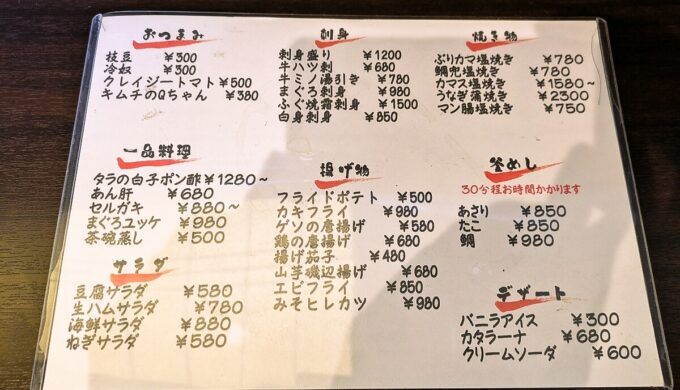 おつまみ
枝豆 ¥300
冷奴 ¥300
クレイジートマト ¥500
キムチのQちゃん ¥380
一品料理
タラの白子ポン酢 ¥1280~
あん肝 ¥680
セルガキ ¥880~
まぐろユッケ ¥980
茶碗蒸し ¥500
サラダ
豆腐サラダ ¥580
生ハムサラダ ¥780
海鮮サラダ ¥880
ねぎサラダ ¥580
刺身
刺身盛り ¥1200
牛ハツ刺 ¥680
牛ミノ湯引き ¥780
まぐろ刺身 ¥980
ふぐ焼霜刺身 ¥1500
白身刺身 ¥850
揚げ物
フライドポテト ¥500
カキフライ ¥980
ゲソの唐揚げ ¥580
鶏の唐揚げ ¥680
揚げ茄子 ¥480
山芋磯辺揚げ ¥680
エビフライ ¥850
みそヒレカツ ¥980
焼き物
ぶりカマ塩焼き ¥780
鯛兜塩焼き ¥780
カマス塩焼き ¥1580~
うなぎ蒲焼き ¥2300
マン腸塩焼き ¥750
釜めし
30分程お時間かかります
あさり ¥850
たこ ¥850
鯛 ¥980
デザート
バニラアイス ¥300
カタラーナ ¥680
クリームソーダ ¥600